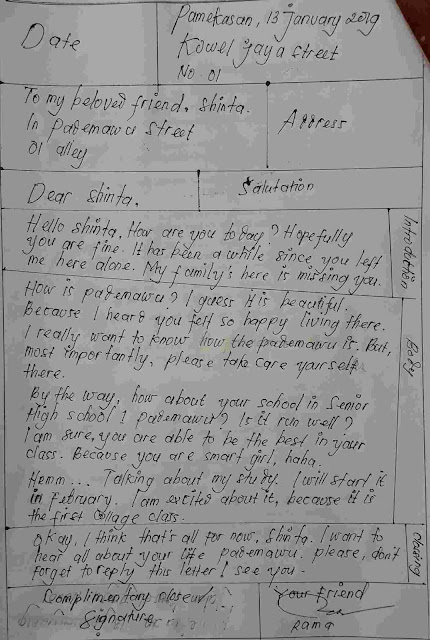 Date
Pamekasan, 13 January 2019
Kowel Jaya Street
No. 01
To my beloved friend, Shinta.
In Pademawu Street
01 alley
Address
Dear Shinta,
Salutation
Hello Shinta, How are you today? Hopefully
you are fine. It has been a while since you left
me here alone. My family's here is missing you.
Introduction
How is pademawu? I guess it is beautiful.
Because I heard you felt so happy living there.
I really want to know how the pademawu is. But,
most importantly, please take care yourself
there.
Body
By the way, how about your school in Senior
High school 1 Pademawu? Is it run well?
I am sure, you are able to be the best in your
class. Because you are smart girl, haha.
Hemm... Talking about my study. I will start it
in February. I am excited about it, because it is
the first collage class.
Okay, I think that's all for now, Shinta. I want to
hear all about your life pademawu. please, don't
forget to reply this letter I see you.
Closing
Complimentary Closeur
Signature
Your friend
Rama